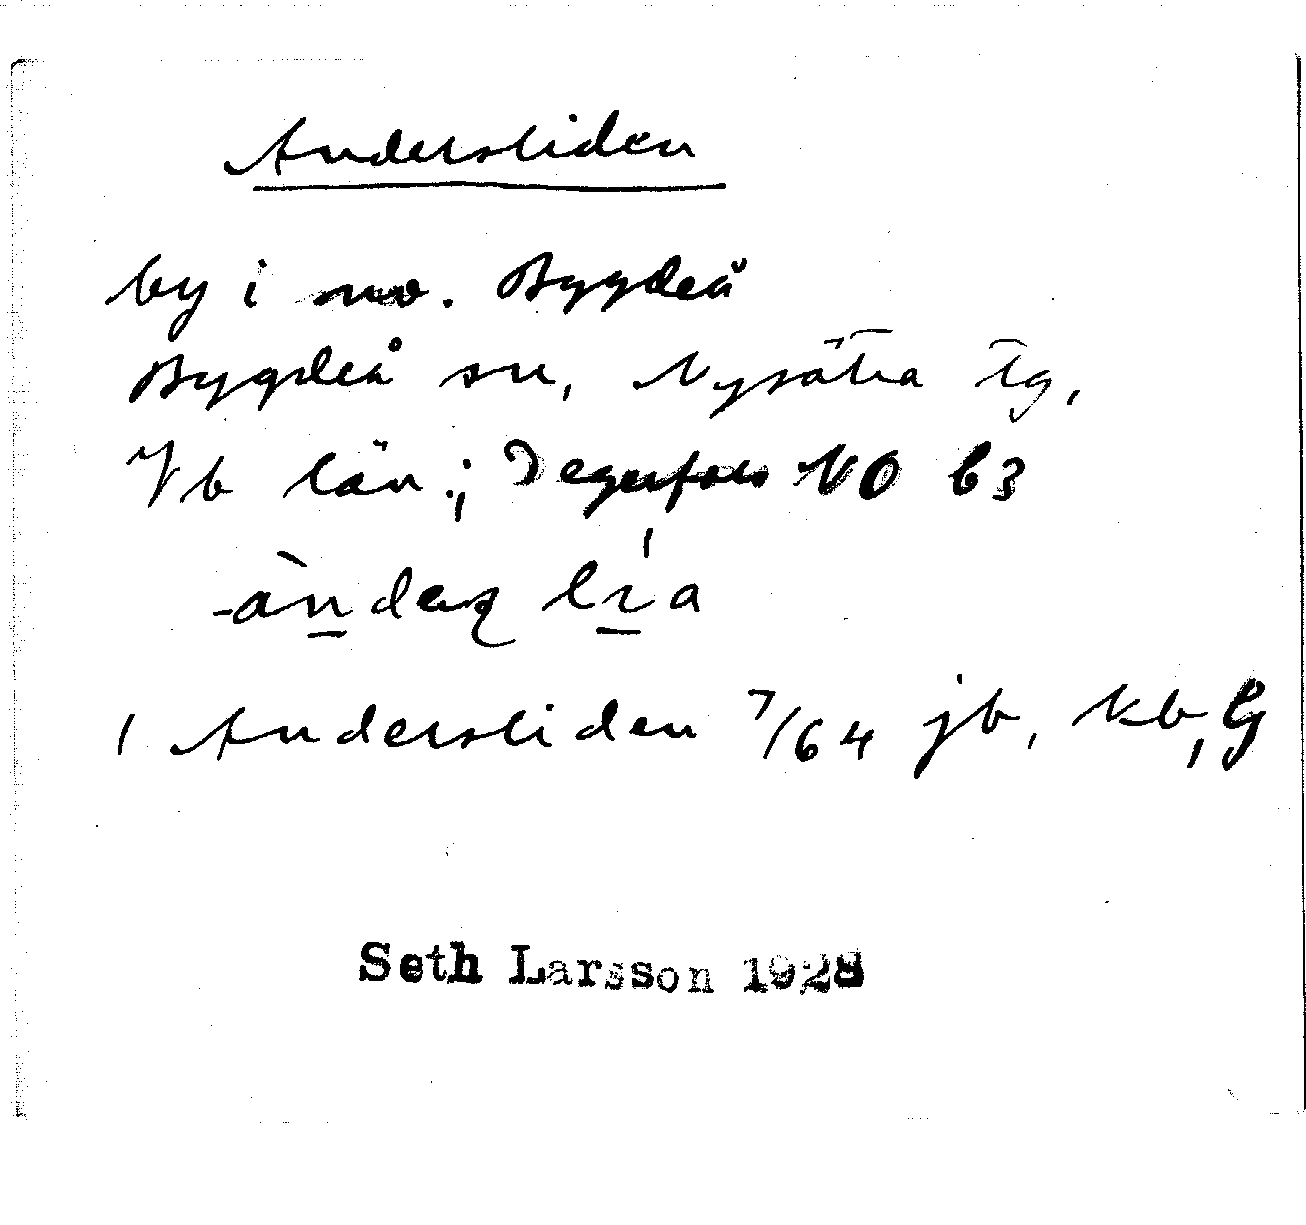 Andersliden
by i nv. Bygdeå
Bygdeå sn, Nysätra tg,
Vb län.; Degerfors NO b3
-àndeʂ lia
1 Andersliden 7/64 jb, kb, G
Seth Larsson 1928